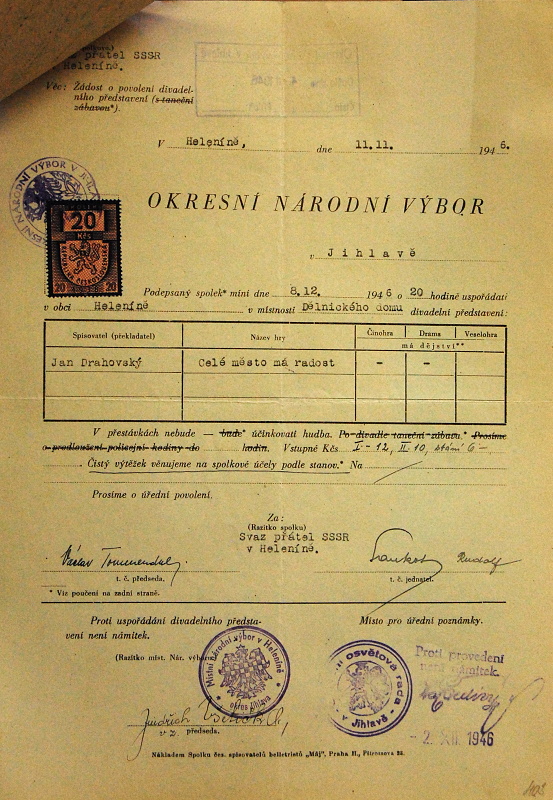 přátel SSSR
Heleníně.
Věc: Žádost o povolení divadel-
ního představení (s taneční
zábavou*).
V Heleníně, dne 11.11. 1946.
OKRESNÍ NÁRODNÍ VÝBOR
v Jihlavě
20
Kčs
20 20
Podepsaný spolek* míní dne 8.12. 1946 o 20 hodině uspořádati
v obci Heleníně v místnosti Dělnického domu divadelní představení:
Spisovatel (překladatel) Název hry Činohra Drama Veselohra
má dějství**
Jan Drahovský Celé město má radost - -
V přestávkách nebude — bude* účinkovati hudba. Po divadle taneční zábava.* Prosíme
o prodloužení policejní hodiny do hodin. Vstupné Kčs I-12, II-10, stání 6-
Čistý výtěžek věnujeme na spolkové účely podle stanov.* Na
Prosíme o úřední povolení.
Za:
(Razítko spolku)
Svaz přátel SSSR
v Heleníně.
Václav Rudolf
t. č. předseda. t. č. jednatel.
* Viz poučení na zadní straně.
Proti uspořádání divadelního předsta-
vení není námitek.
Místo pro úřední poznámky.
(Razítko míst. Nár. výboru)
Místní národní výbor v Heleníně
okres Jihlava
osvětová rada
v Jihlavě
Proti provedení
není námitek.
- 2. XII. 1946
Jindřich
v z. předseda.
Nákladem Spolku čes. spisovatelů beletristů „Máj“, Praha II., Příčossova 22.